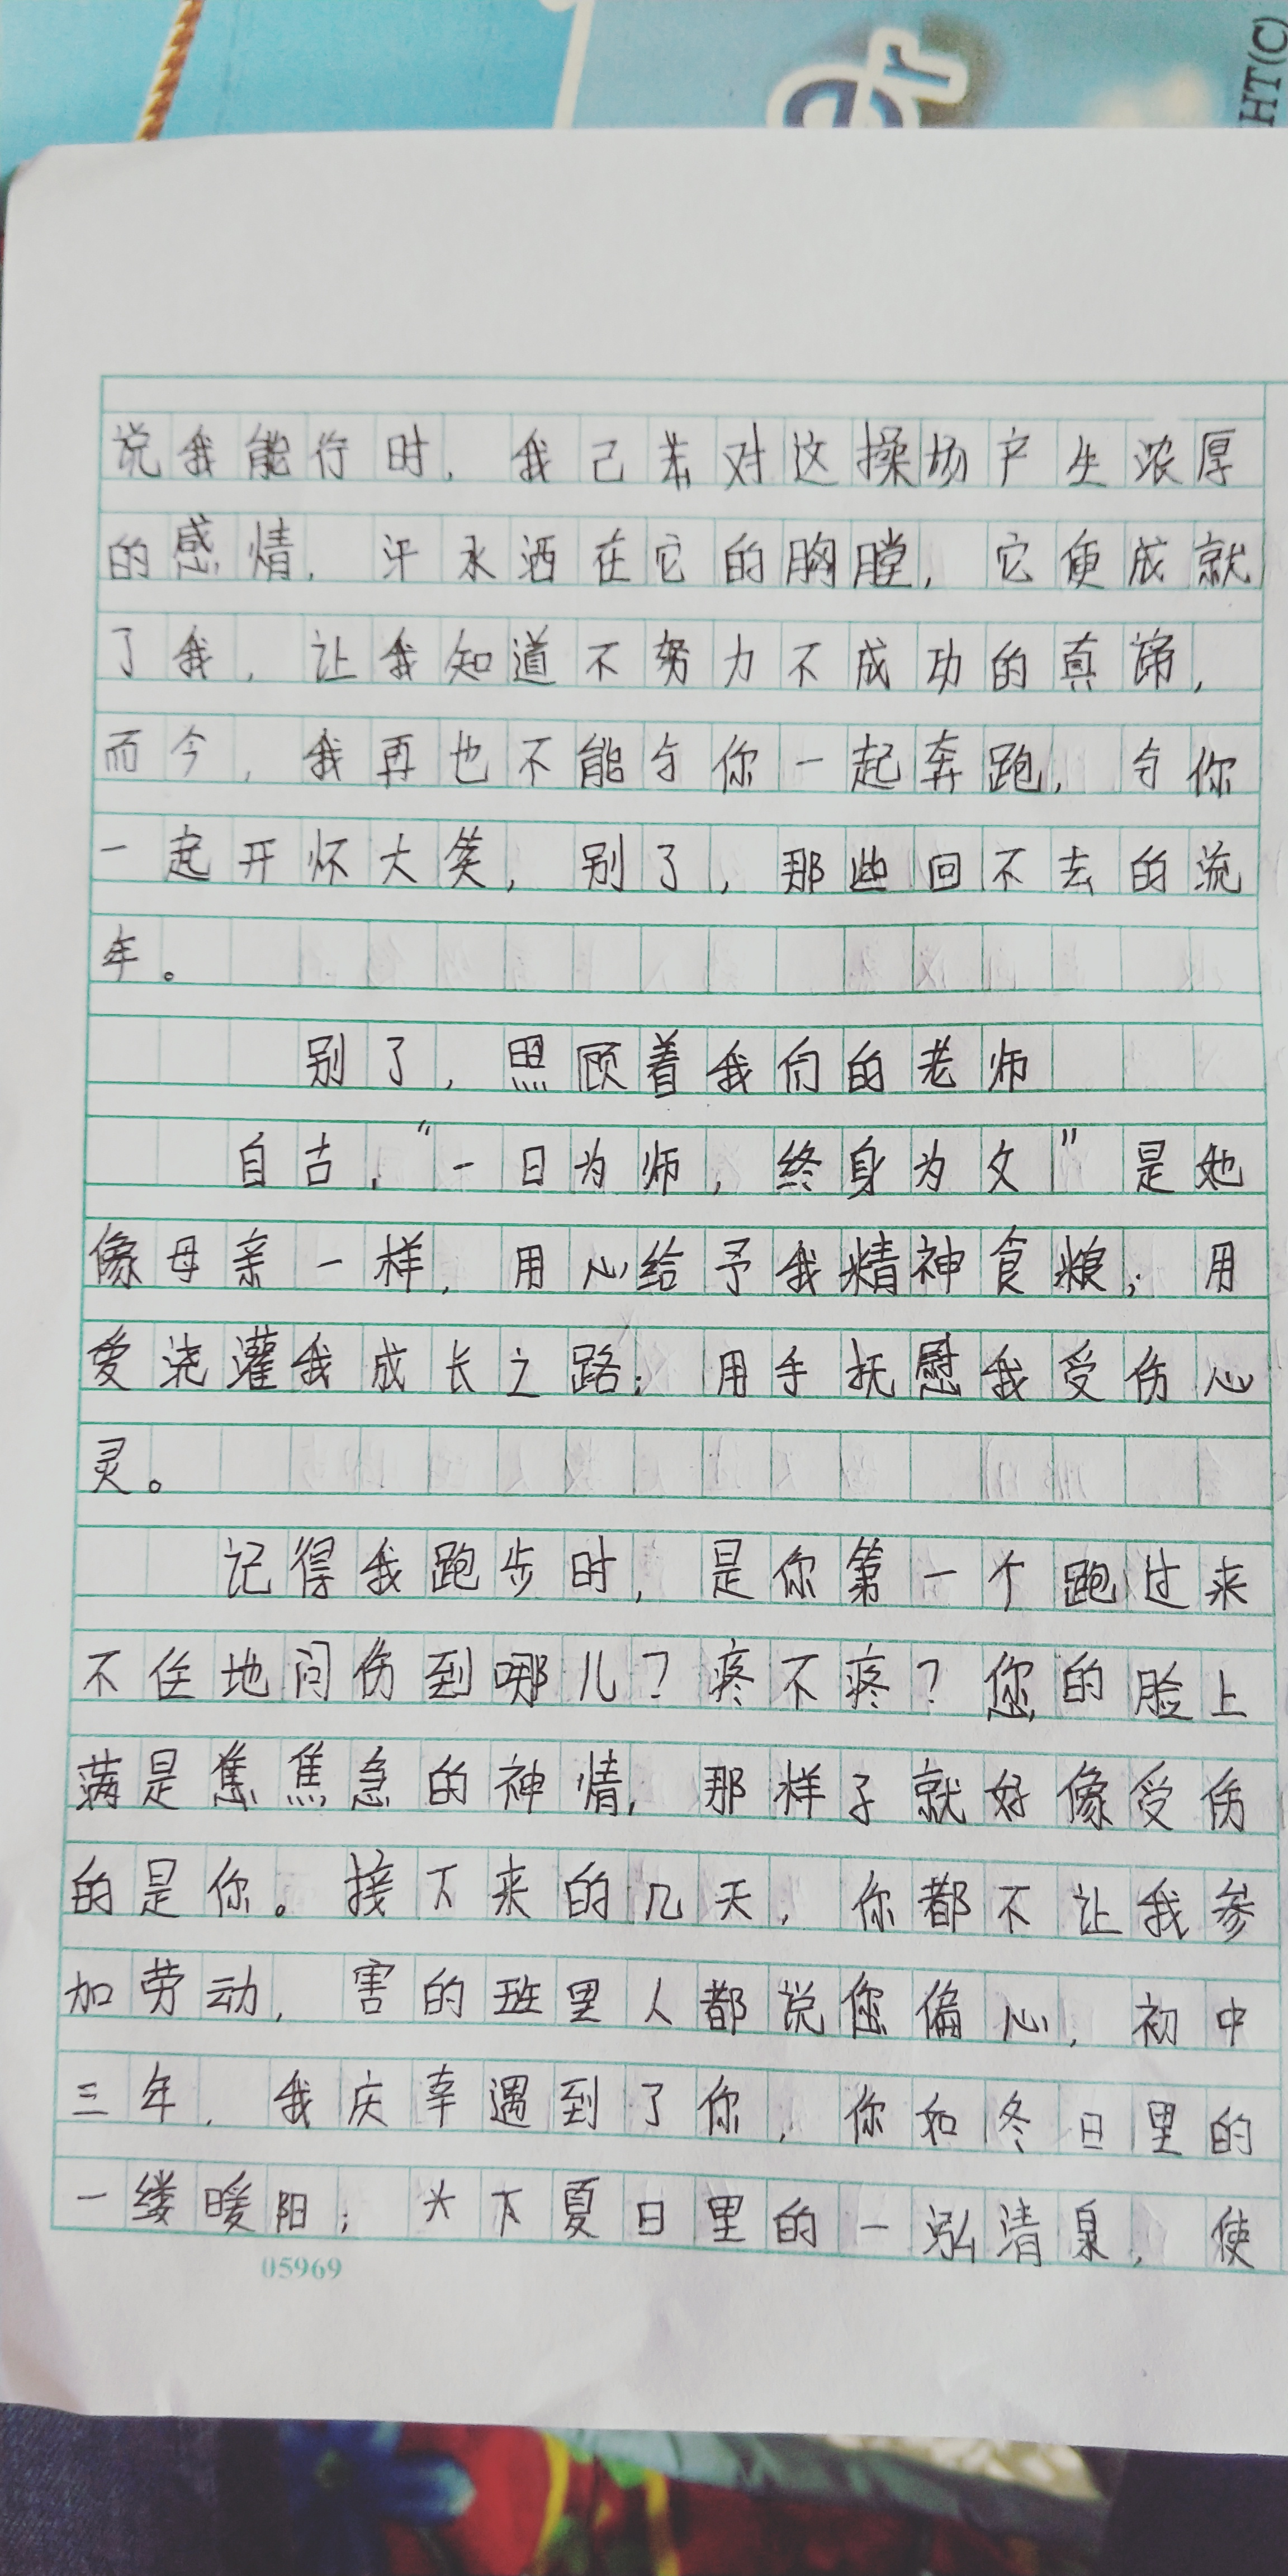 er
HT(C)
说我能行时，我己未对这操场产生浓厚
的感情，汗水洒在它的胸膛，它便成就
了我，让我知道不努力不成功的真谛，
而今，我再也不能与你一起奔跑，与你
一起开怀大笑，别了，那些回不去的流
年。
别了，照顾着我们的老师
自古，“一日为师，终身为父”是她
像母亲一样，用心给予我精神食粮；用
爱浇灌我成长之路；用手抚慰我受伤心
灵。
记得我跑步时，是你第一个跑过来
不住地问伤到哪儿？疼不疼？您的脸上
满是焦焦急的神情，那样子就好像受伤
的是你。接下来的几天，你都不让我参
加劳动，害的班里人都说您偏心，初中
三年，我庆幸遇到了你，你如冬日里的
一缕暖阳；夏日里的一泓清泉，使
05969